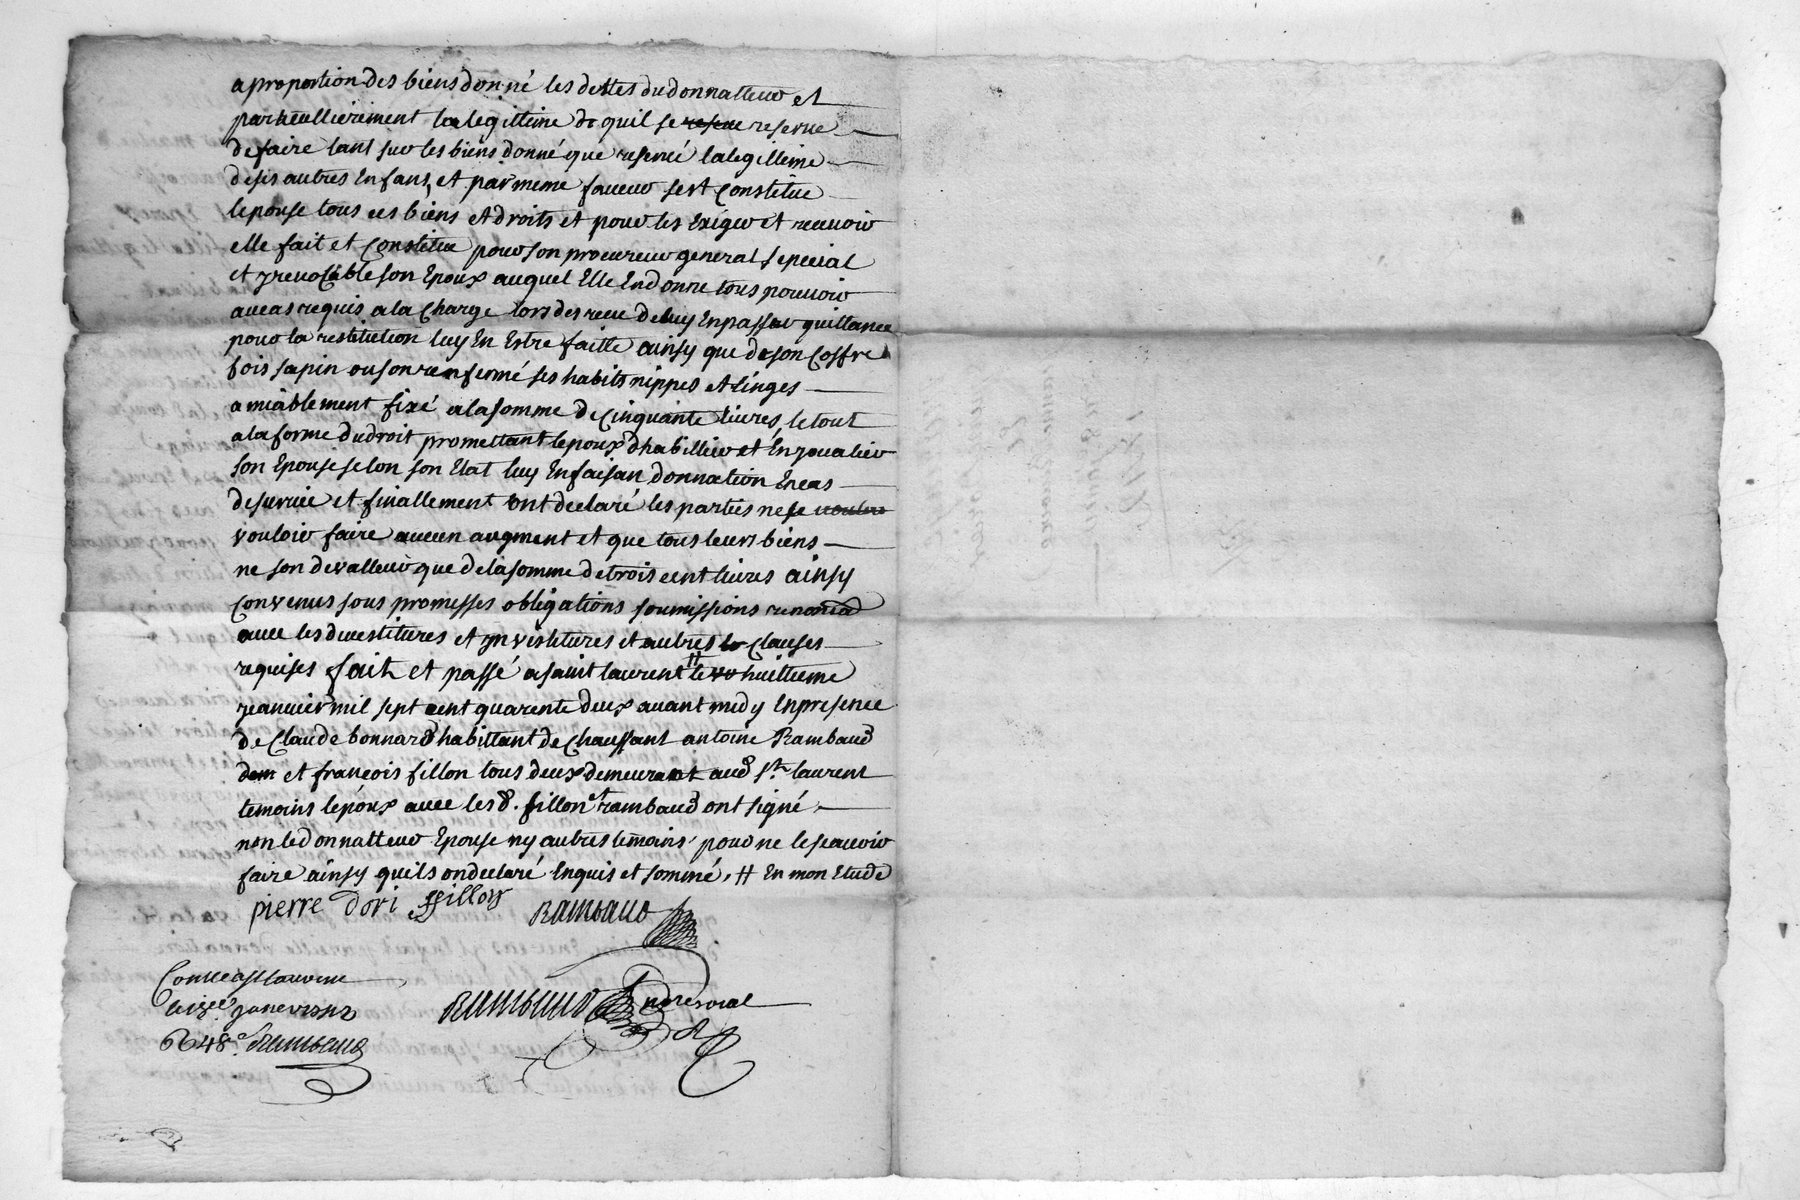 a proportion des biens donné les dettes du donnatteur et
particullierement la legittime de quil se reserve reserve
de faire tant sur les biens donné que reservé la legittime
de ses autres Enfans, et par meme faveur sest Constitue
lepouse tous ces biens et droits et pour les Exiger et recevoir
elle fait et Constitue pour son procureur general special
et yrevocable son Epoux auquel Elle En donne tous pouvoir
au cas requis a la Charge lors des receu de luy En passer quittance
pour la restitution luy En Estre faitte ainsy que de son Coffre
bois sapin ou son renfermé ses habits nippes et Linges
amiâblement fixé a la somme de Cinquante livres, le tout
a la forme du droit promettant lepoux dhabiller et Enjoualier
son Epouse selon son Etat luy En faisan donnation En cas
de survie et finallement ont declaré les parties ne se vouloir
vouloir faire aucun augment et que tous leurs biens
ne son de valleur que de la somme de trois cent livres ainsy
Convenus sous promesses obligations soumissions renonciaõ
avec les devestitures et ynvestitures et autres Clauses
requises fait et passé a saint laurent # le huittieme
jeanvier mil sept cent quarente deux avant midy En presence
de Claude bonnard habittant de Chaussant antoine Rambaud
et francois fillon tous deux demeurant aud St. laurent
temoins lepoux avec les d. fillon et rambaud ont signé
non le donnatteur Epouse ny autres temoins pour ne le scavoir
faire ainsy quils on declaré Enquis et sommé, # En mon Etude
pierre dori ffillon Rambaud
Conlle a St laurent
Rambaud Nore royal
6648s. Rambaud